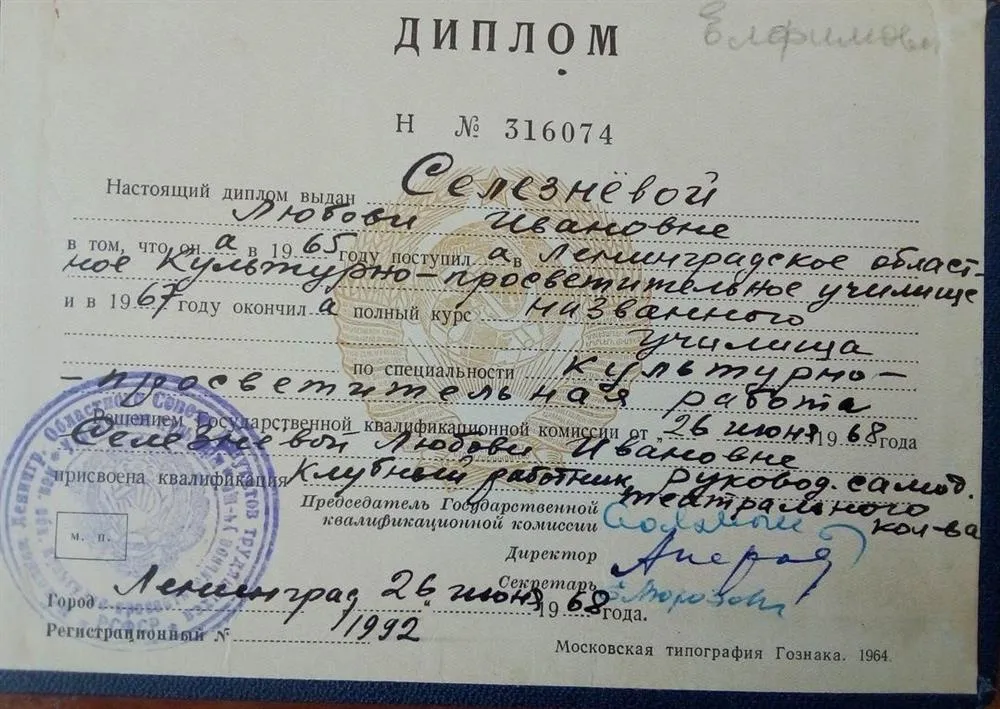 ДИПЛОМ
Н № 316074
Настоящий диплом выдан Селезнёвой
Любови Ивановне
в том, что он а в 1965 году поступил а в Ленинградское област-
ное Культурно-просветительное училище
и в 1967 году окончил а полный курс названного
училища
по специальности Культурно-
-просветительная работа
Решением Государственной квалификационной комиссии от „26 июня 1968 года
Селезневой Любови Ивановне
присвоена квалификация Клубный работник, руковод. самод.
театрального
кол-ва
Председатель Государственной
квалификационной комиссии
Директор
Секретарь
м. п.
Город Ленинград 26 июня 1968 года.
Регистрационный № 1992
Московская типография Гознака. 1964.